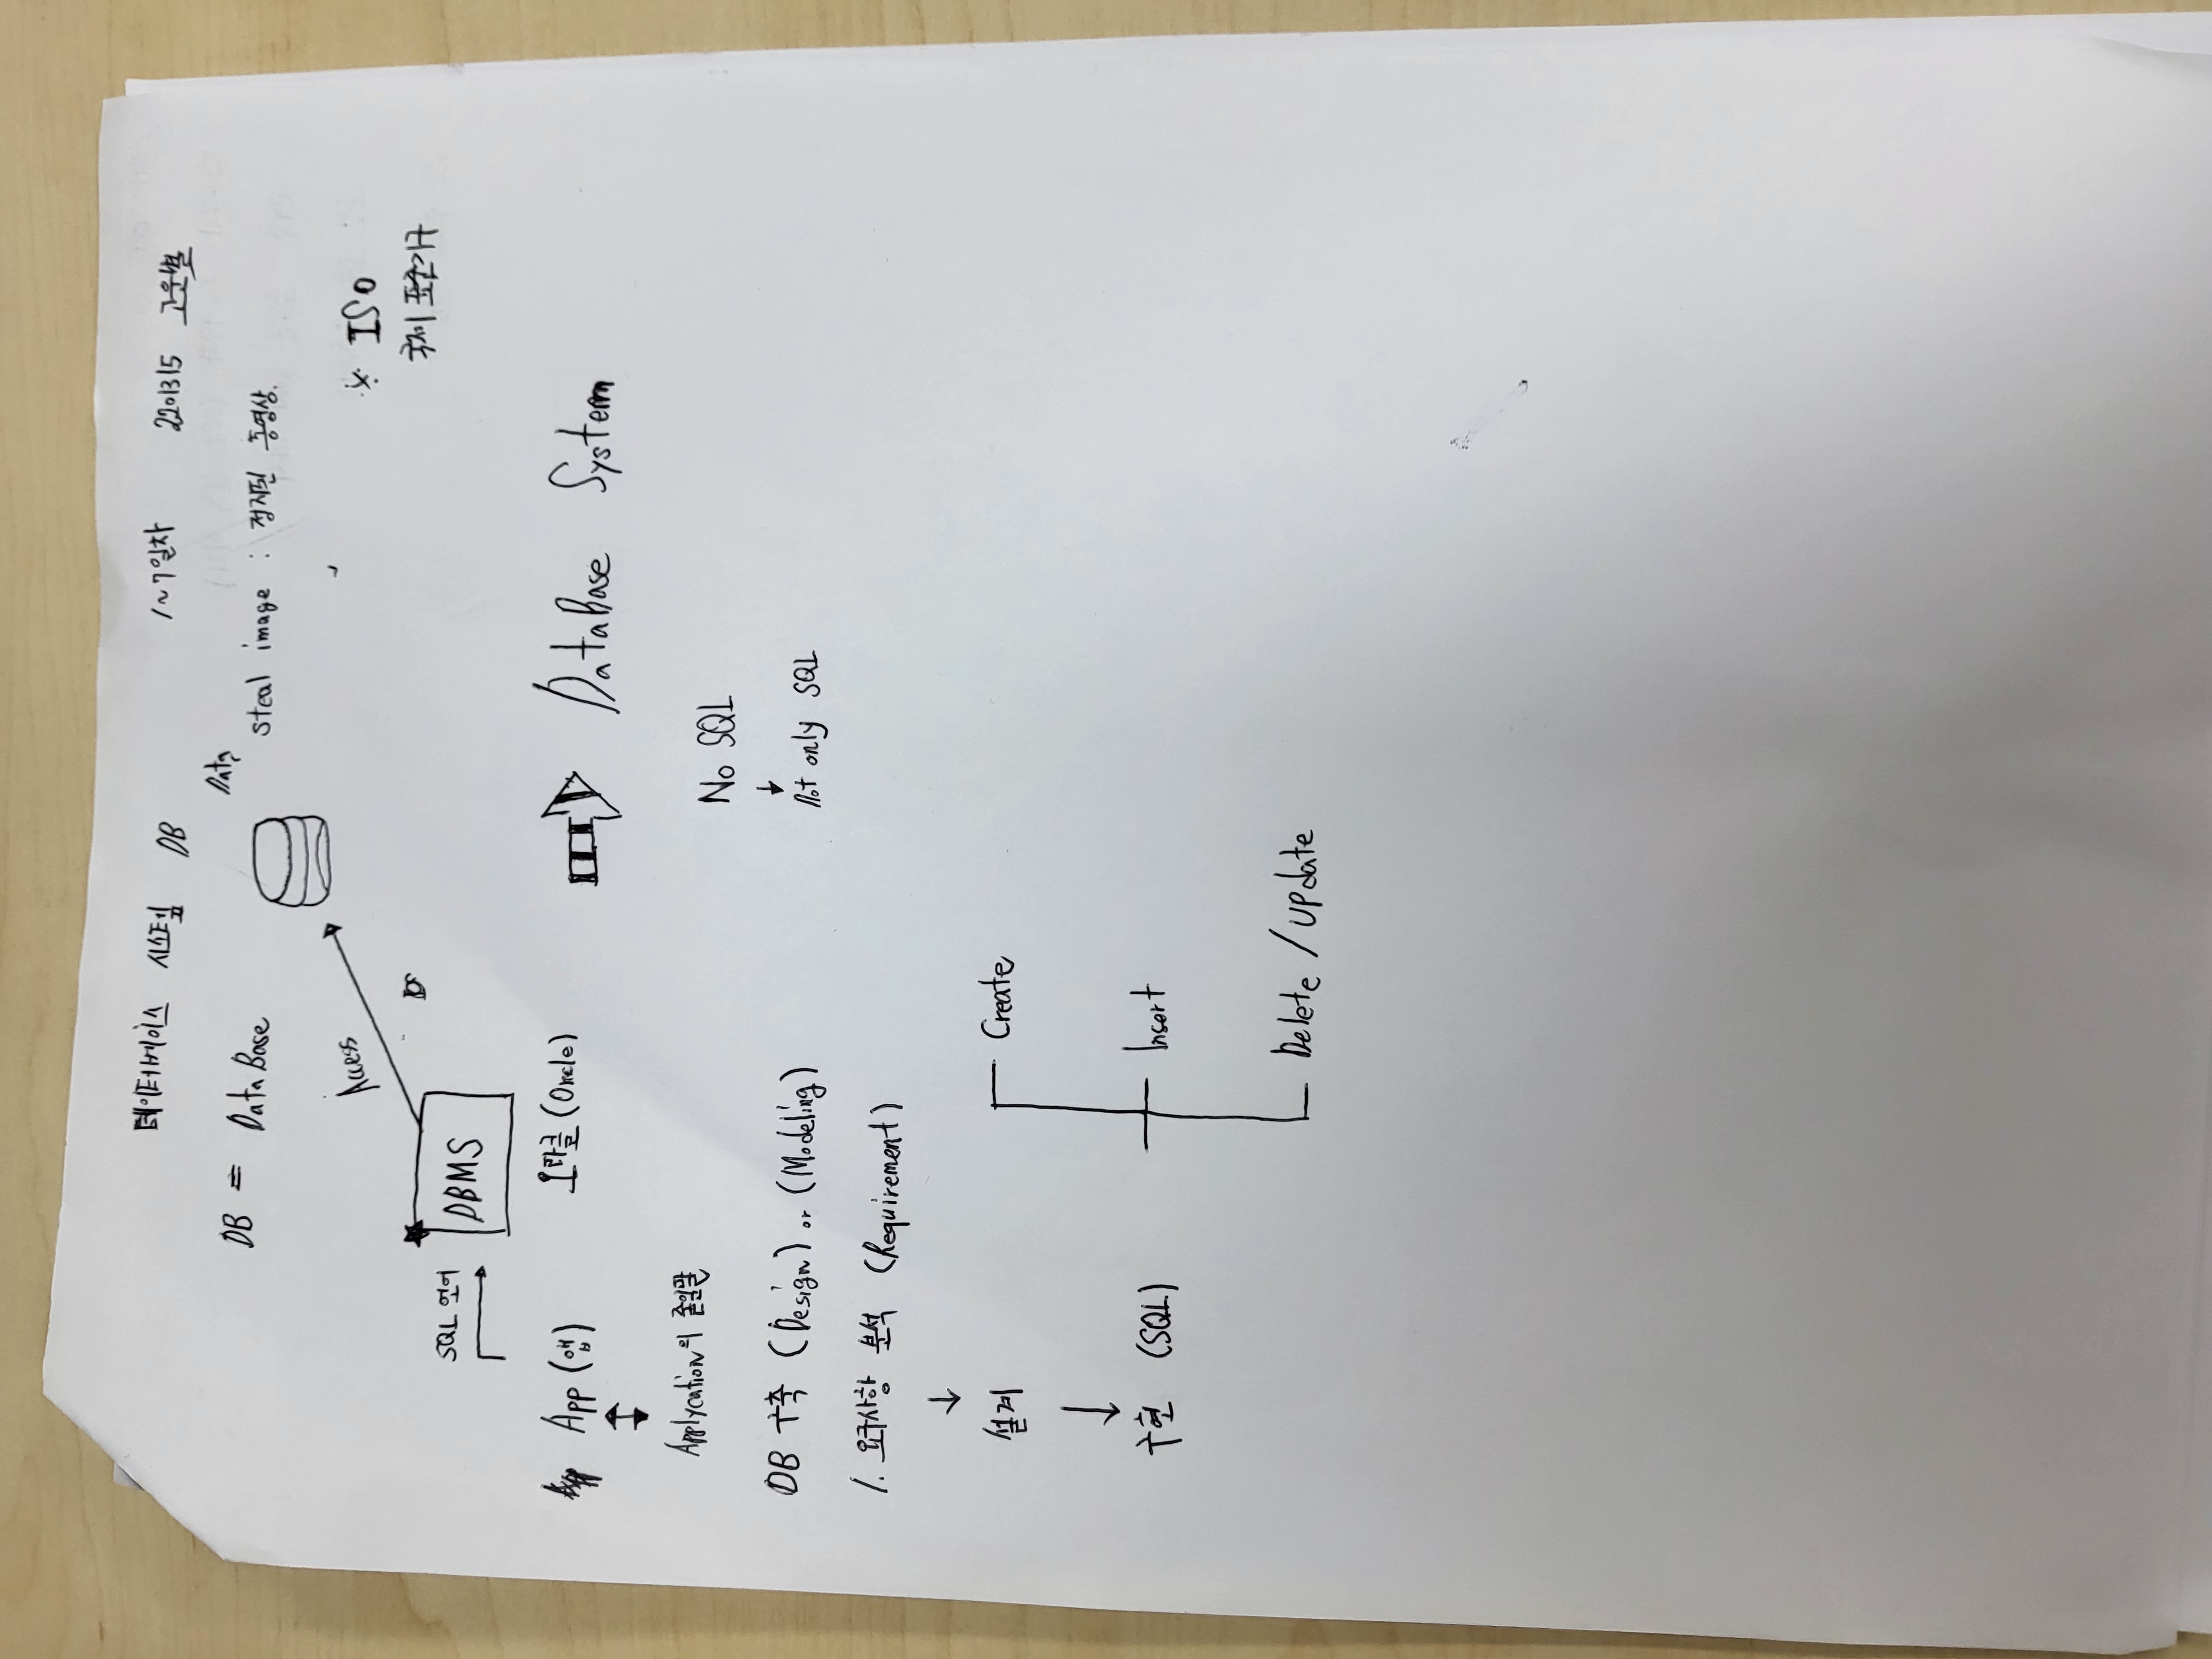 데이터베이스 시스템 DB 1~7일차 2201315 고운별
DB = DataBase
Data
steal image : 정지된 동영상.
Access
※ ISO
국제 표준기구
SQL 언어
DBMS
App (앱)
오라클 (Oracle)
DataBase System
Applycation의 줄임말
No SQL
↓
Not only SQL
DB 구축 (Design) or (Modeling)
1. 요구사항 분석 (Requirement)
↓
설계
↓
구현 (SQL)
Create
Insert
Delete / update